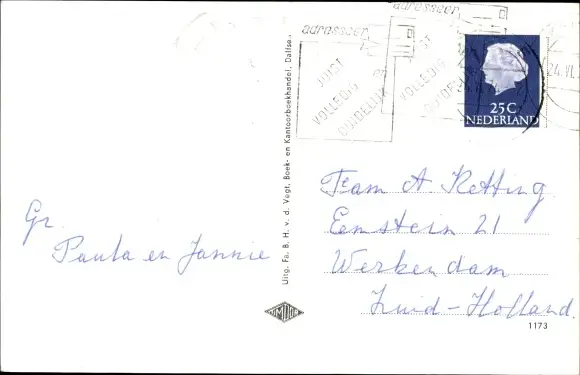 adresseer
adresseer
JUIST
VOLLEDIG
en
DUIDELIJK
VOLLEDIG
24.VI.
25C
NEDERLAND
Gr.
Paula en Jannie
Uitg. Fa. B. H. v. d. Vegt, Boek- en Kantoorboekhandel, Dalfsen
Team A. Ketting
Eemstein 21
Werkendam
Zuid-Holland.
1173